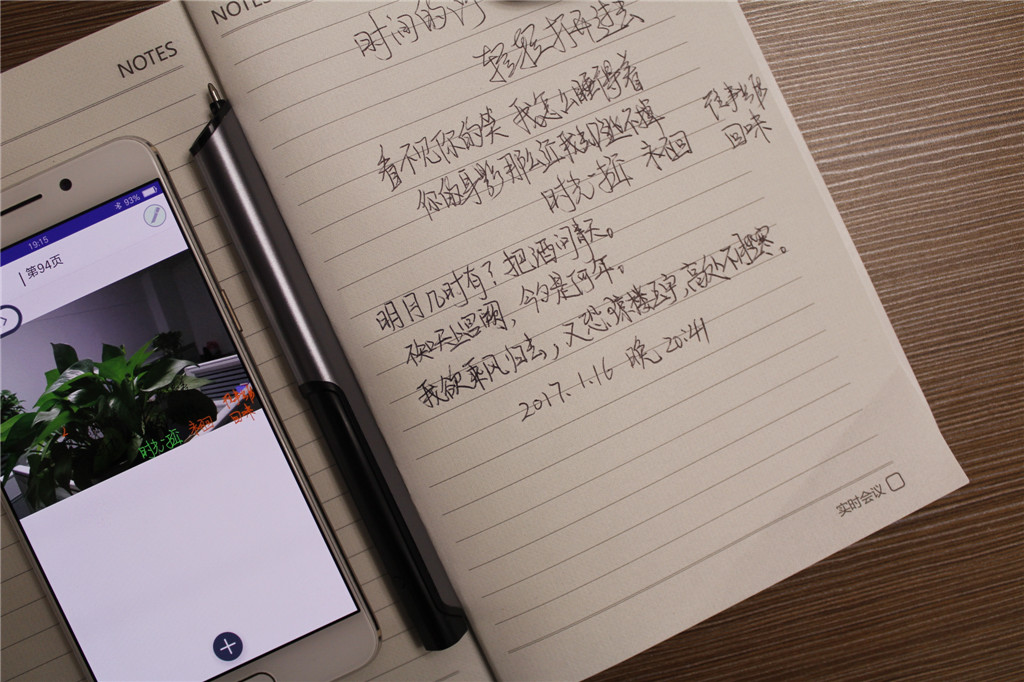 NOTES
NOTES
时间的门
轻轻打开过去
看不见你的笑 我怎么睡得着
你的身影那么近我却抱不掉
时光一逝 永不回 往事
回味
明月几时有？把酒问青天。
不知天上宫阙，今夕是何年。
我欲乘风归去，又恐琼楼玉宇，高处不胜寒。
2017.1.16 晚 20:41
实时会议
93%
19:15
第94页
时光一逝
回味